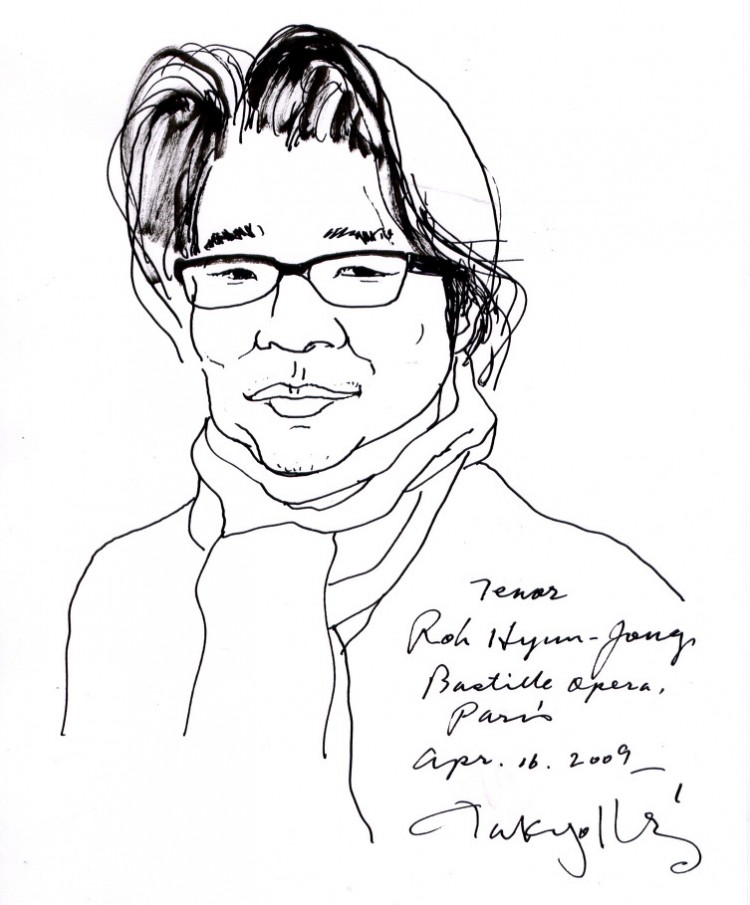 Tenor
Roh Hyun-Jong,
Bastille opera,
Paris
Apr. 16. 2009